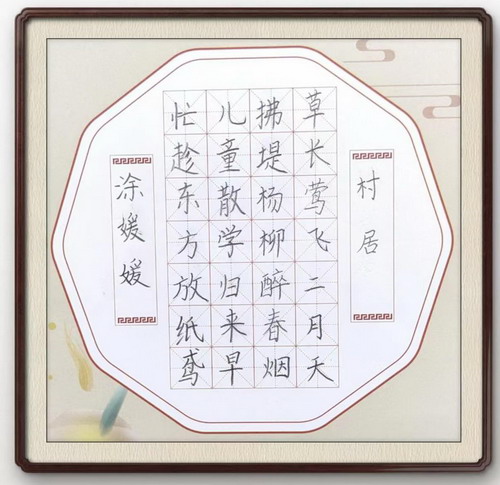 村居
草长莺飞二月天
拂堤杨柳醉春烟
儿童散学归来早
忙趁东方放纸鸢
涂媛媛